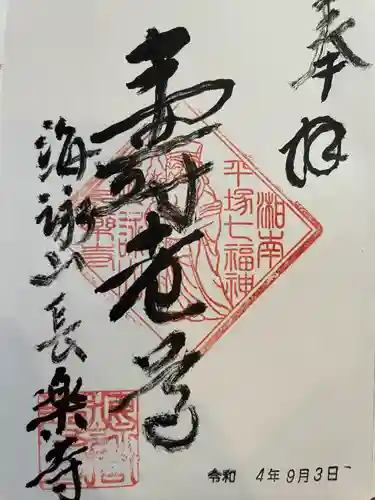 奉拝
壽老尊
海詠山長楽寺
湘南
平塚七福神
令和 4年9月3日